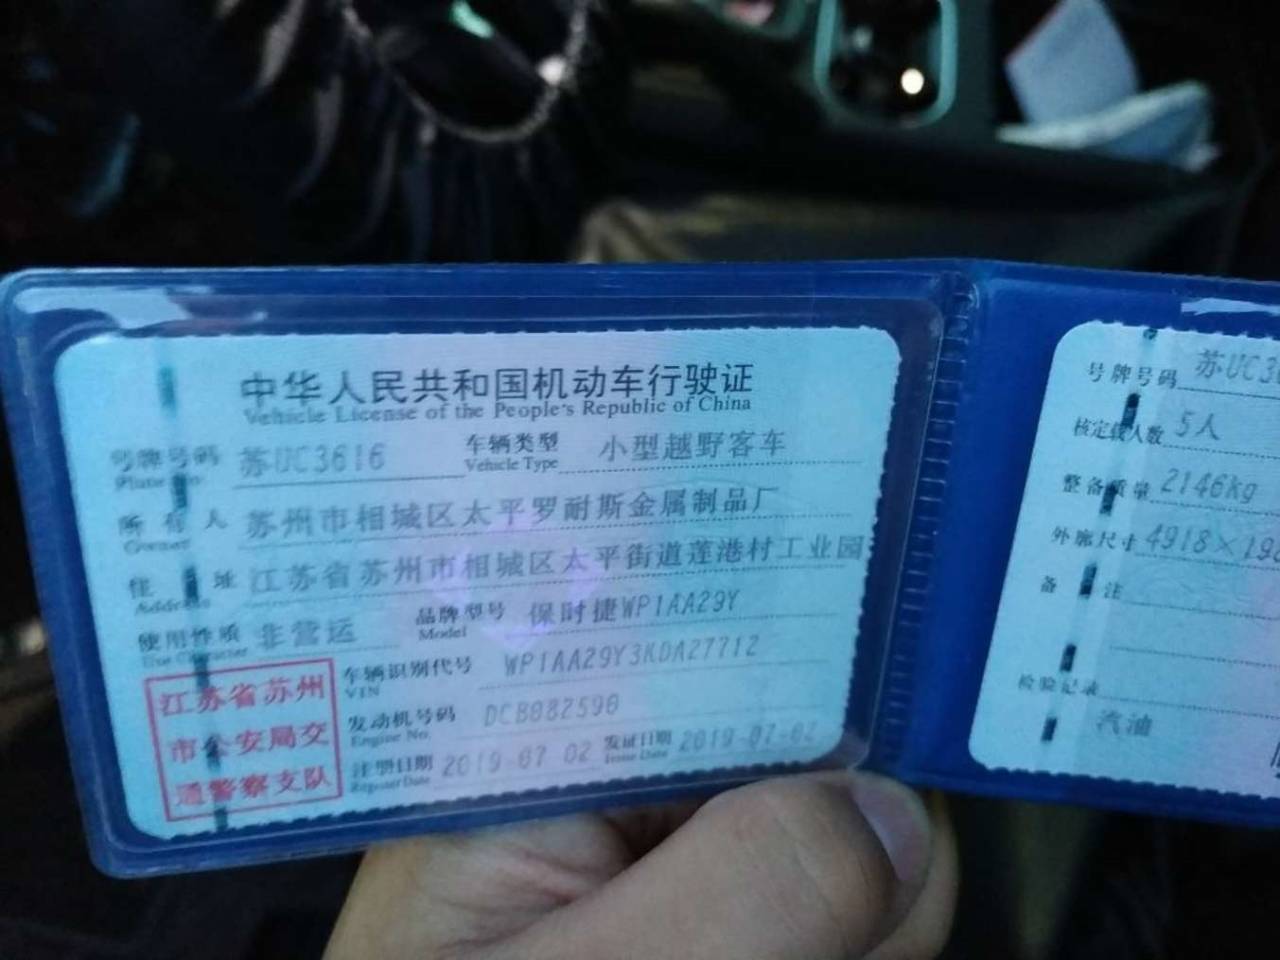 中华人民共和国机动车行驶证
Vehicle License of the People's Republic of China
号牌号码 苏UC3616 车辆类型 小型越野客车
Plate No. Vehicle Type
所有人 苏州市相城区太平罗耐斯金属制品厂
Owner
住址 江苏省苏州市相城区太平街道莲港村工业园
Address
使用性质 非营运 品牌型号 保时捷WP1AA29Y
Use Character Model
车辆识别代号 WP1AA29Y3KDA27712
VIN
发动机号码 DCB082590
Engine No.
注册日期 2019-07-02 发证日期 2019-07-02
Register Date Issue Date
江苏省苏州
市公安局交
通警察支队
号牌号码 苏UC3
核定载人数 5人
整备质量 2146kg
外廓尺寸 4918×19
备注
检验记录
汽油